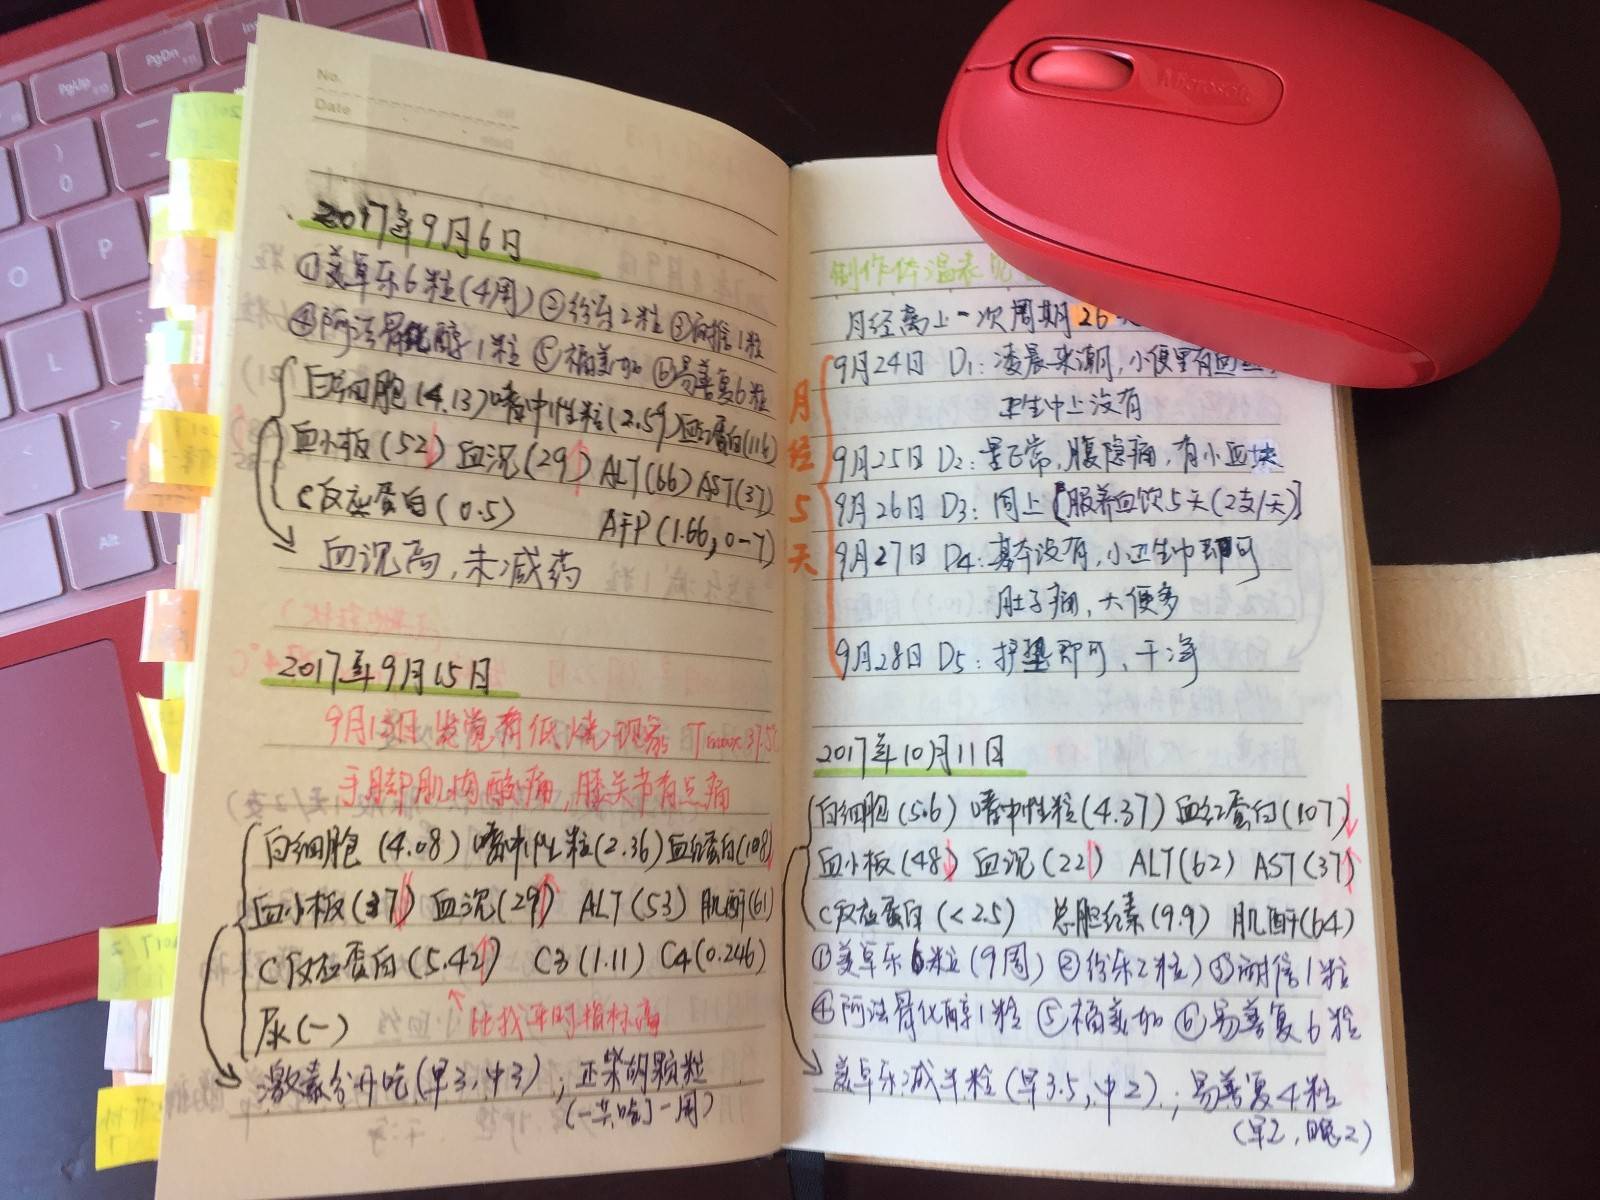 PgUp
PgDn
Ins
)
0
P
O
Alt
Microsoft
No.
Date
2017年9月6日
①美卓乐6粒(4周) ②纷乐2粒 ③耐信1粒
④阿法骨化醇1粒 ⑤福美加 ⑥易善复6粒
白细胞(4.13) 嗜中性粒(2.59) 血红蛋白(116)
血小板(52)↓ 血沉(29↑) ALT(66) AST(37)
C反应蛋白(0.5) AFP(1.66, 0-7)
血沉高,未减药
2017年9月15日
9月13日发觉有低烧现象 Tmax 37.5℃
手脚肌肉酸痛,膝关节有点痛
白细胞(4.08) 嗜中性粒(2.36) 血红蛋白(108)
血小板(37)↓ 血沉(29↑) ALT(53) 肌酐(61)
C反应蛋白(5.42↑) C3(1.11) C4(0.246)
尿(-) ↑比找平时指标高
激素分开吃(早3,中3);正柴胡颗粒
(一共喝了一周)
制作体温表
月经离上一次周期26
月经5天
9月24日 D1:凌晨来潮,小便里有血
卫生巾上没有
9月25日 D2:量正常,腹隐痛,有小血块
9月26日 D3:同上[服养血饮5天(2支/天)]
9月27日 D4:基本没有,小卫生巾即可
肚子痛,大便多
9月28日 D5:护垫即可,干净
2017年10月11日
白细胞(5.6) 嗜中性粒(4.37) 血红蛋白(107)↓
血小板(48)↓ 血沉(22) ALT(62) AST(37)↑
C反应蛋白(<2.5) 总胆红素(9.9) 肌酐(64)
①美卓乐6粒(9周) ②纷乐2粒) ③耐信1粒
④阿法骨化醇1粒 ⑤福美加 ⑥易善复6粒
美卓乐减半粒(早3.5,中2);易善复4粒
(早2,晚2)